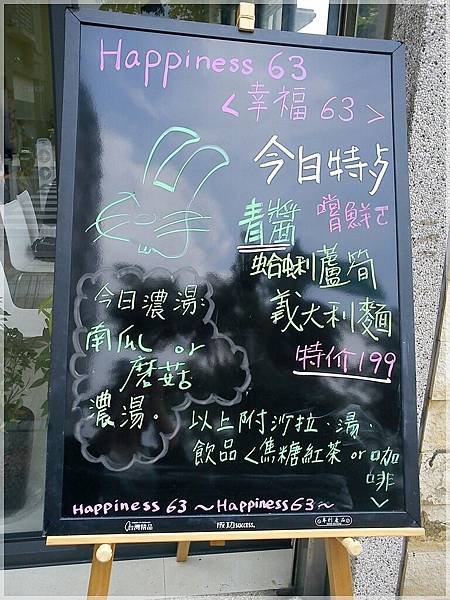 Happiness 63
<幸福 63>
今日特
青醬 嚐鮮
蛤蜊蘆筍
義大利麵
特价199
今日濃湯:
南瓜 or
蘑菇
濃湯。
以上附沙拉、湯、
飲品<焦糖紅茶 or 咖
啡
Happiness 63～Happiness 63～
SUCCESS